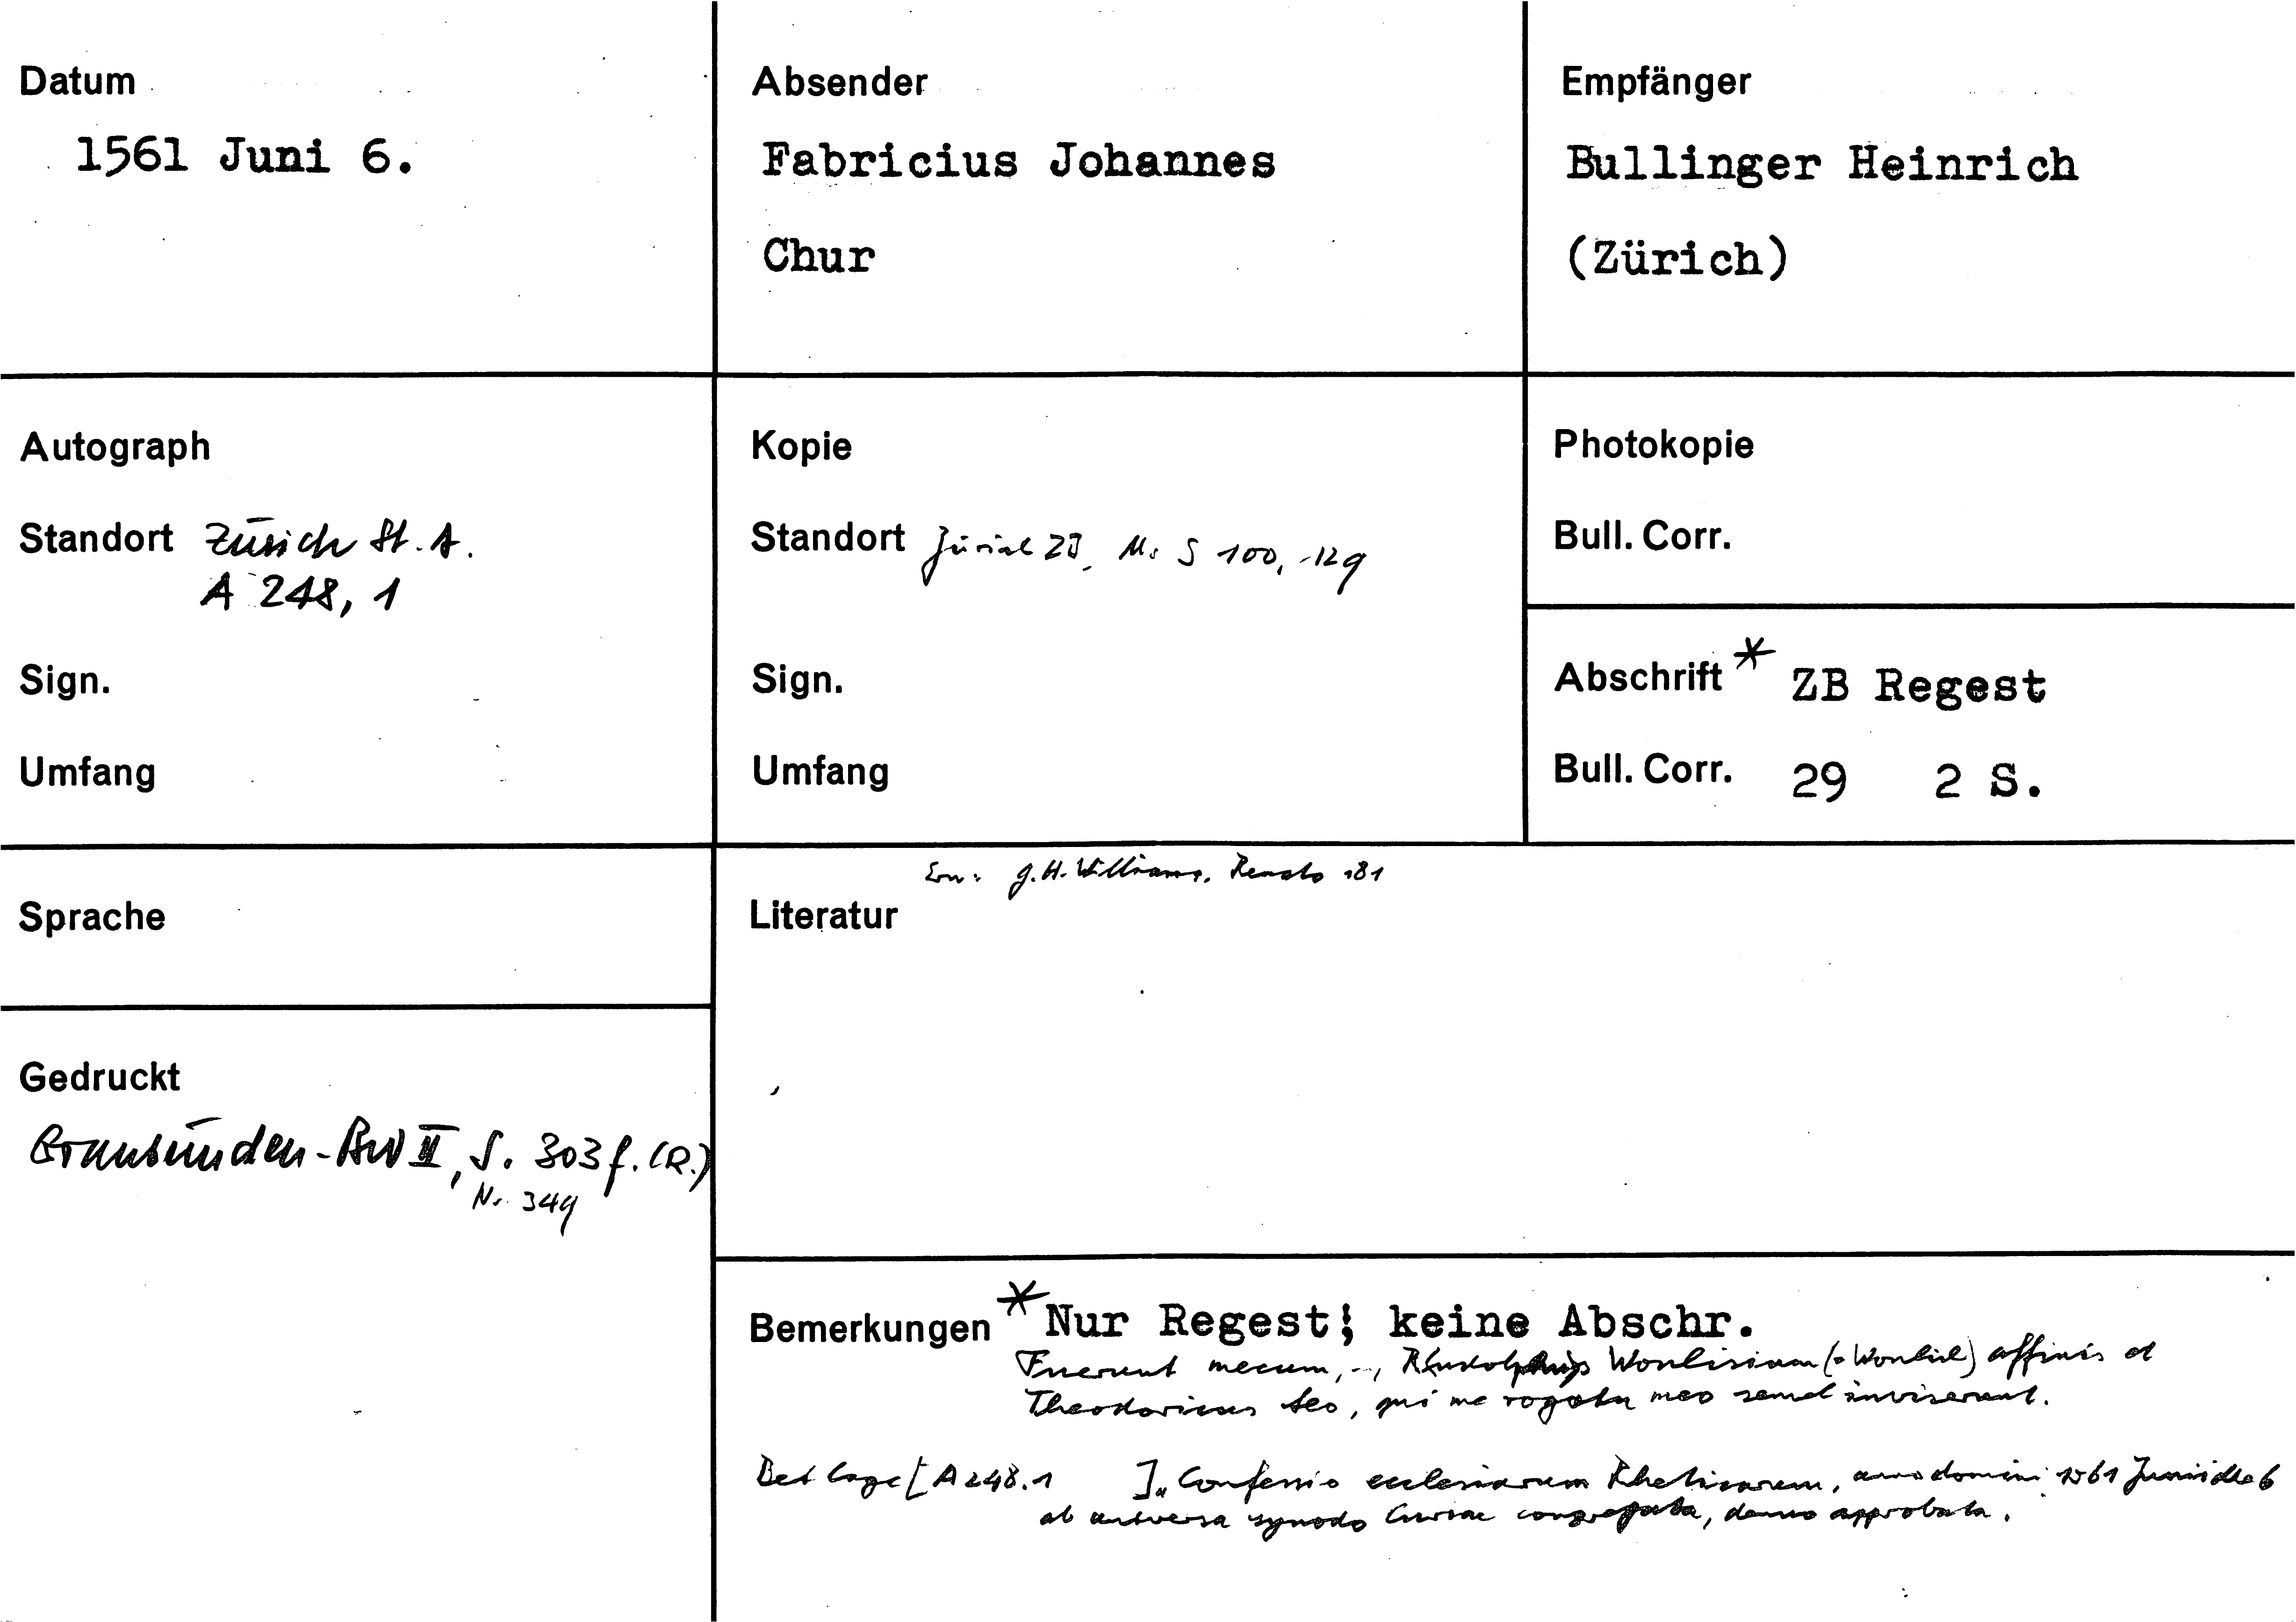 Datum
1561 Juni 6.
Absender
Fabricius Johannes
Chur
Empfänger
Bullinger Heinrich
(Zürich)
Autograph
Standort Zürich St. A.
A 248, 1
Sign.
Umfang
Kopie
Standort Zürich ZB, Ms S 100, 129
Sign.
Umfang
Photokopie
Bull. Corr.
Abschrift * ZB Regest
Bull. Corr. 29 2 S.
Sprache
Gedruckt
Graubünden-BW II, S. 303f. (R.)
Nr. 349
G. H. Williams, Renato 181
Literatur
Bemerkungen * Nur Regest; keine Abschr.
Fuerunt mecum, affinis et
Theodoricus Leo, qui me rogatu meo semel inviserunt.
Beilage [A 248.1 ] „Confessio ecclesiarum Rheticarum, anno domini 1561 Junii die 6
ab universa synodo Curiae congregata, denuo approbata.